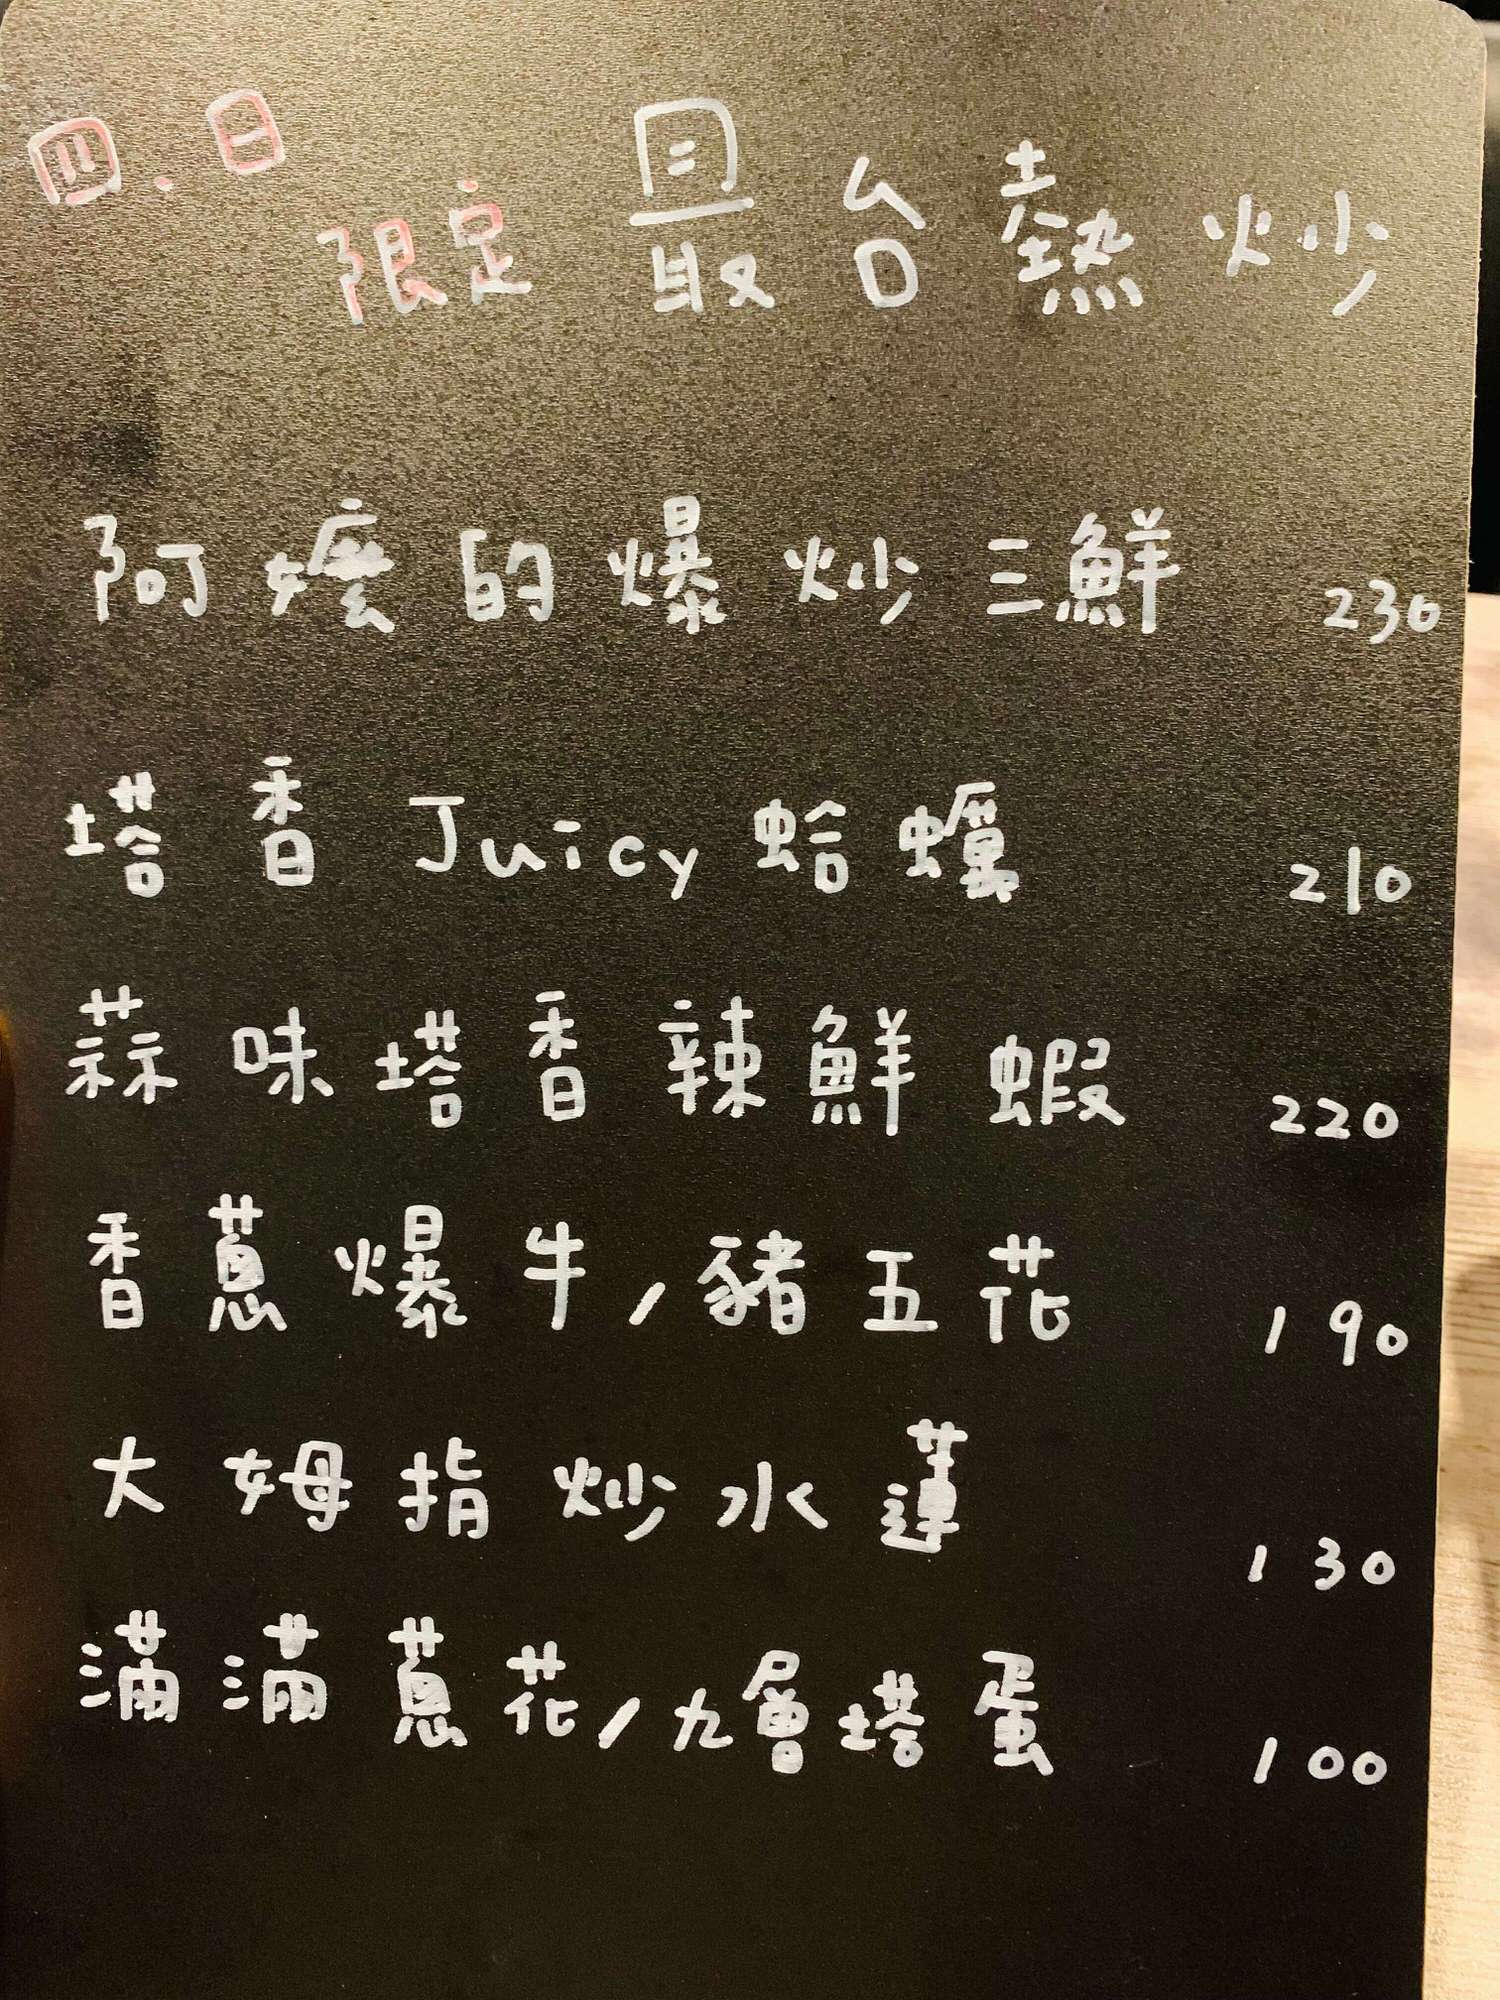 四.日
限定 最台熱炒
阿嬤的爆炒三鮮 230
塔香Juicy蛤蠣 210
蒜味塔香辣鮮蝦 220
香蔥爆牛/豬五花 190
大姆指炒水蓮 130
滿滿蔥花/九層塔蛋 100